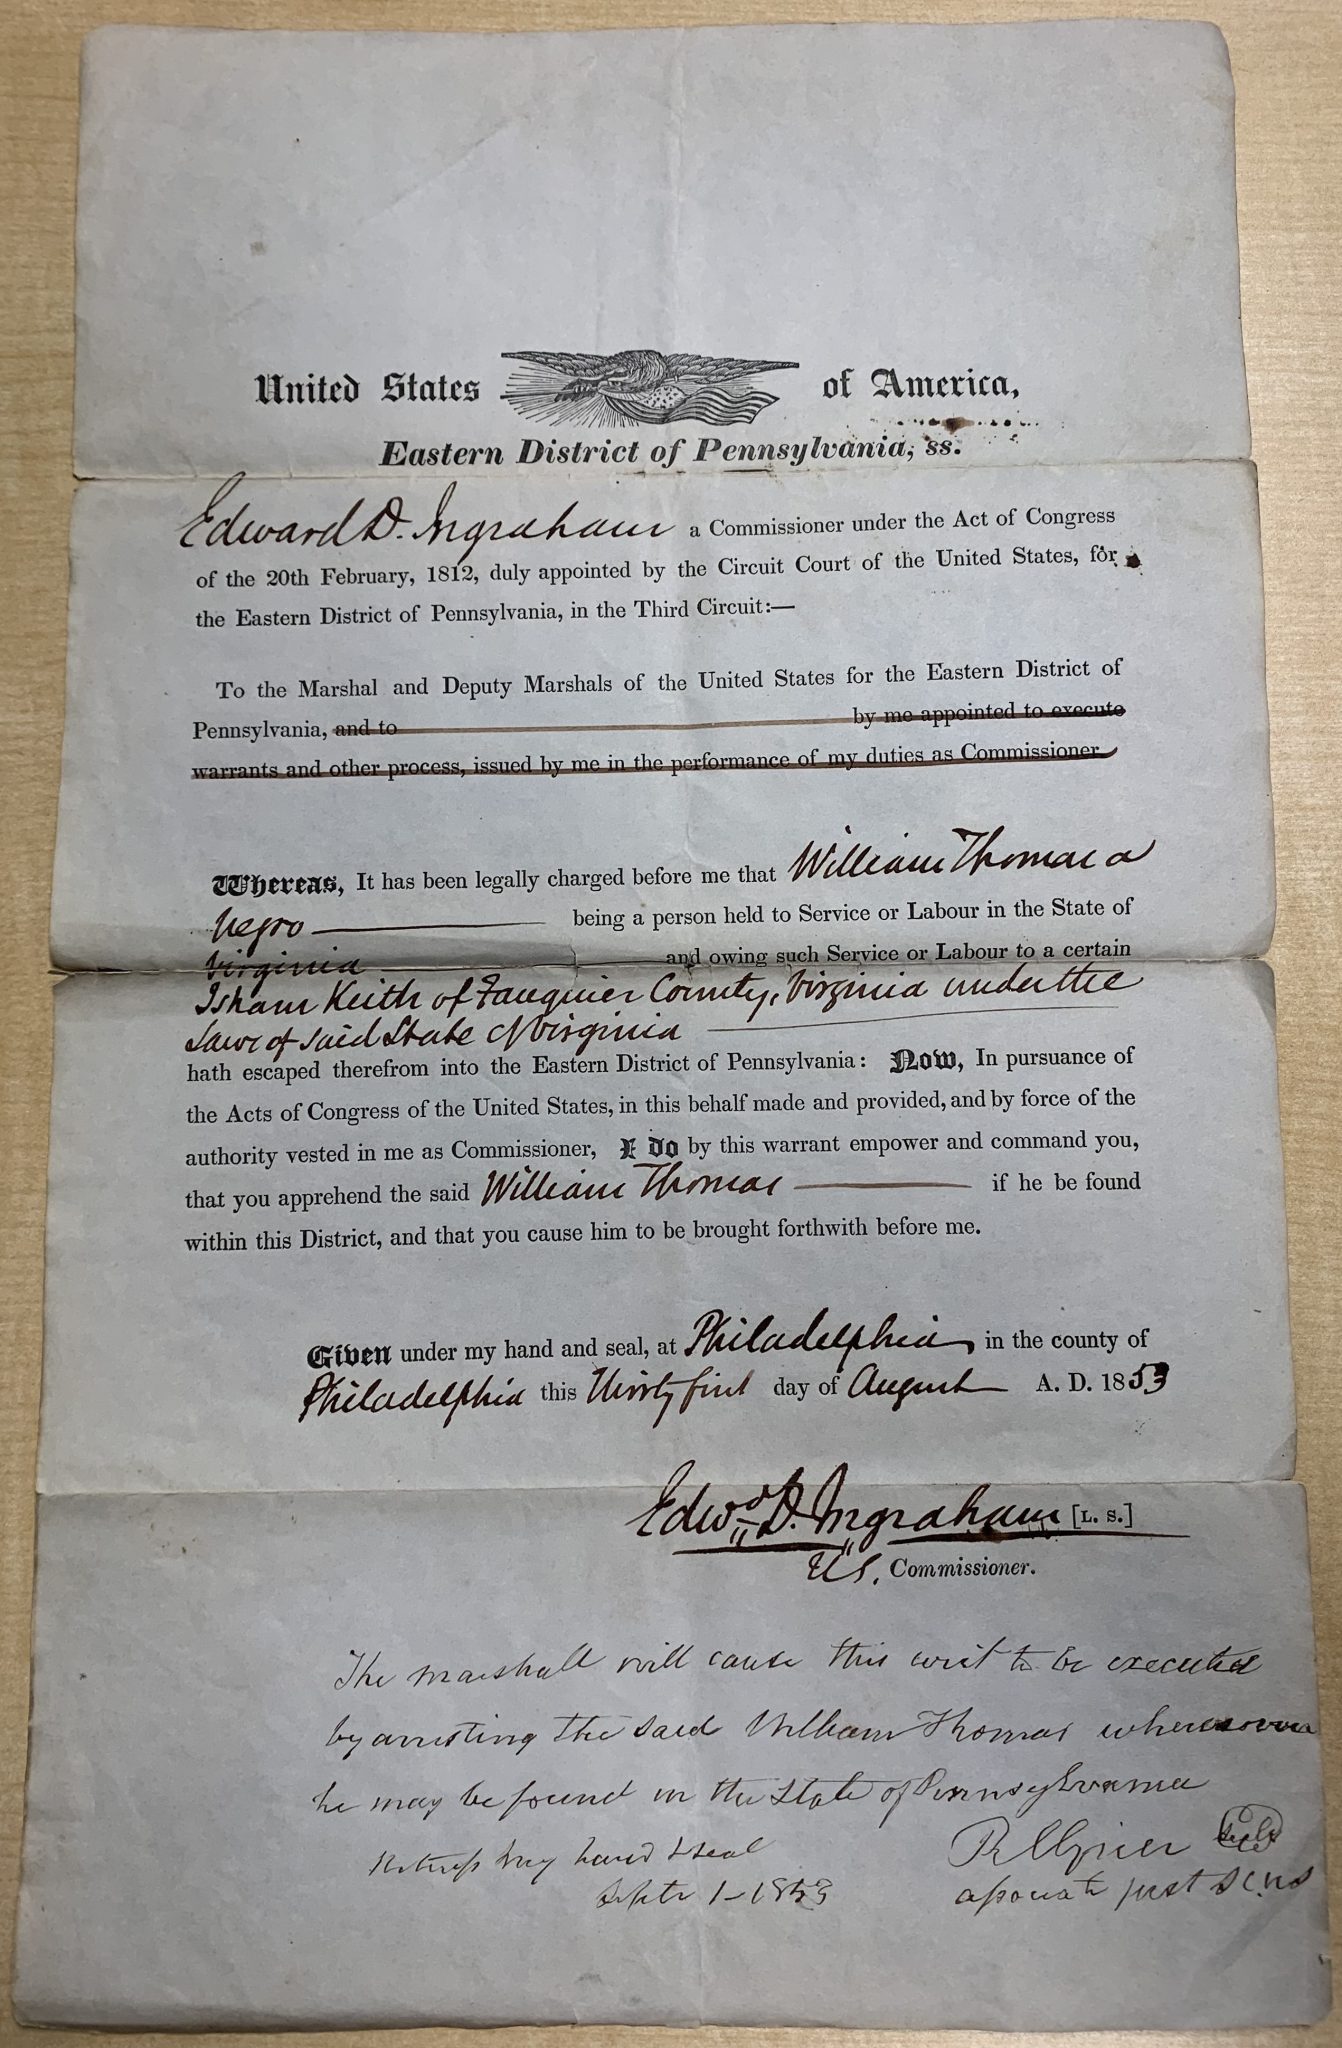 United States of America,
Eastern District of Pennsylvania, ss.
Edward D. Ingraham a Commissioner under the Act of Congress
of the 20th February, 1812, duly appointed by the Circuit Court of the United States, for
the Eastern District of Pennsylvania, in the Third Circuit:—
To the Marshal and Deputy Marshals of the United States for the Eastern District of
Pennsylvania, and to by me appointed to execute
warrants and other process, issued by me in the performance of my duties as Commissioner
Whereas, It has been legally charged before me that William Thomas a
negro being a person held to Service or Labour in the State of
Virginia and owing such Service or Labour to a certain
Isham Keith of Fauquier County, Virginia under the
Laws of said State of Virginia
hath escaped therefrom into the Eastern District of Pennsylvania: Now, In pursuance of
the Acts of Congress of the United States, in this behalf made and provided, and by force of the
authority vested in me as Commissioner, I do by this warrant empower and command you,
that you apprehend the said William Thomas if he be found
within this District, and that you cause him to be brought forthwith before me.
Given under my hand and seal, at Philadelphia, in the county of
Philadelphia this Thirty first day of August A. D. 1853
Edwd. D. Ingraham [L. S.]
U.S. Commissioner.
The marshall will cause this writ to be executed
by arresting the said William Thomas whensoever
he may be found in the State of Pennsylvania
Witness my hand & seal R C Grier seal
Septr 1 - 1853 associate just S C. U S